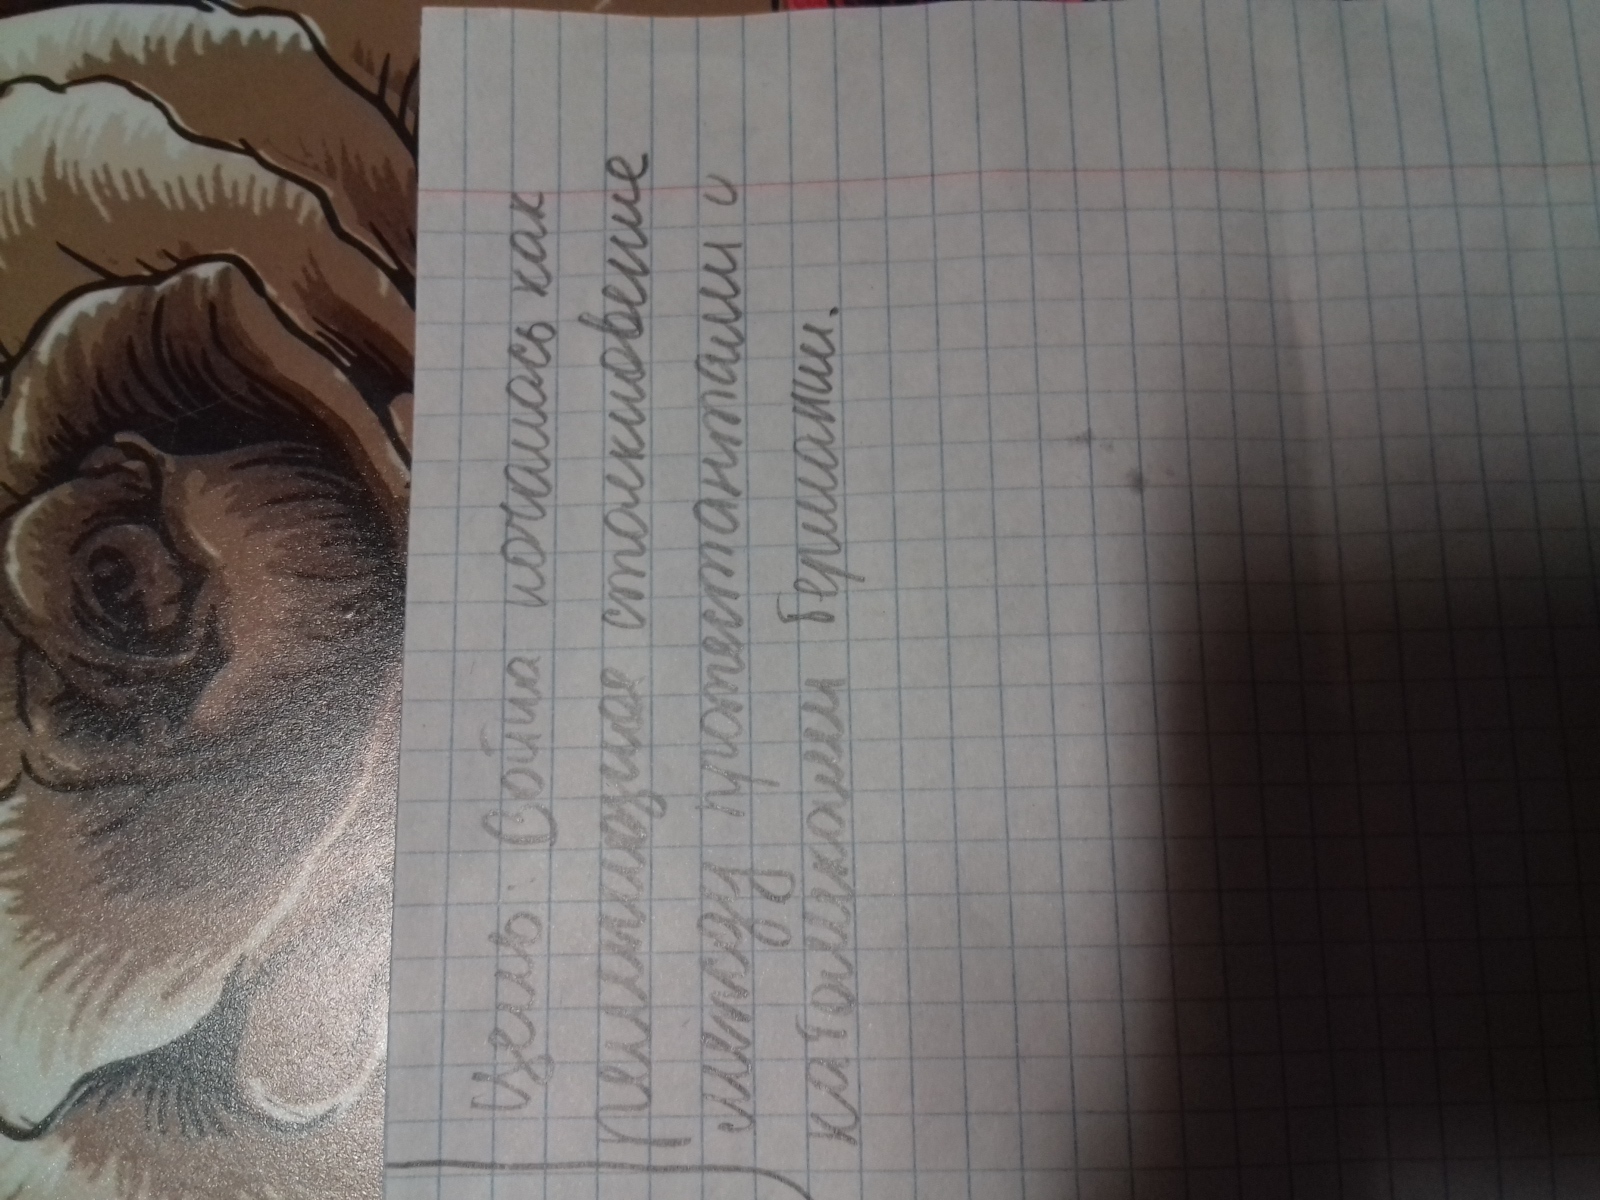 Цель: Война началась как
религиозное столкновение
между протестантами и
католиками Германии.